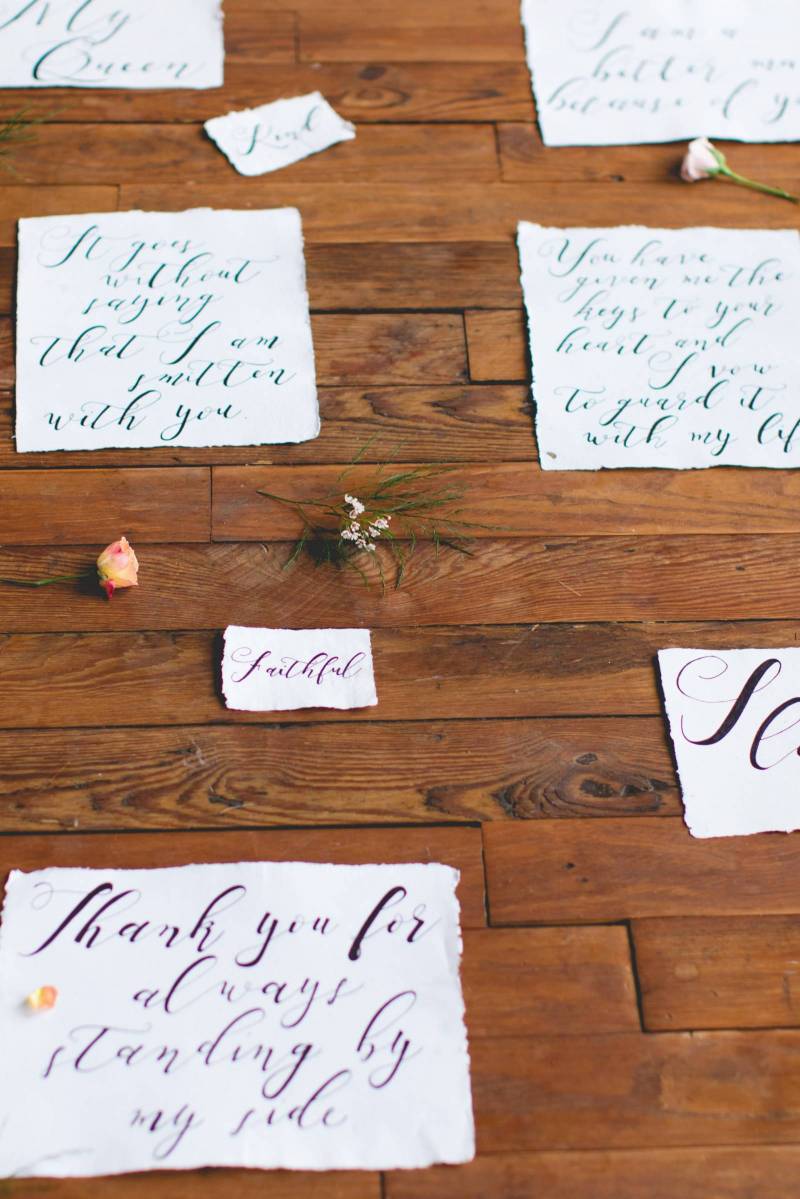 My
Queen
I am a
better
because of
Kind
It goes
without
saying
that I am
smitten
with you.
You have
given me the
keys to your
heart and
I vow
to guard it
with my
Faithful
Thank you for
always
standing by
my side